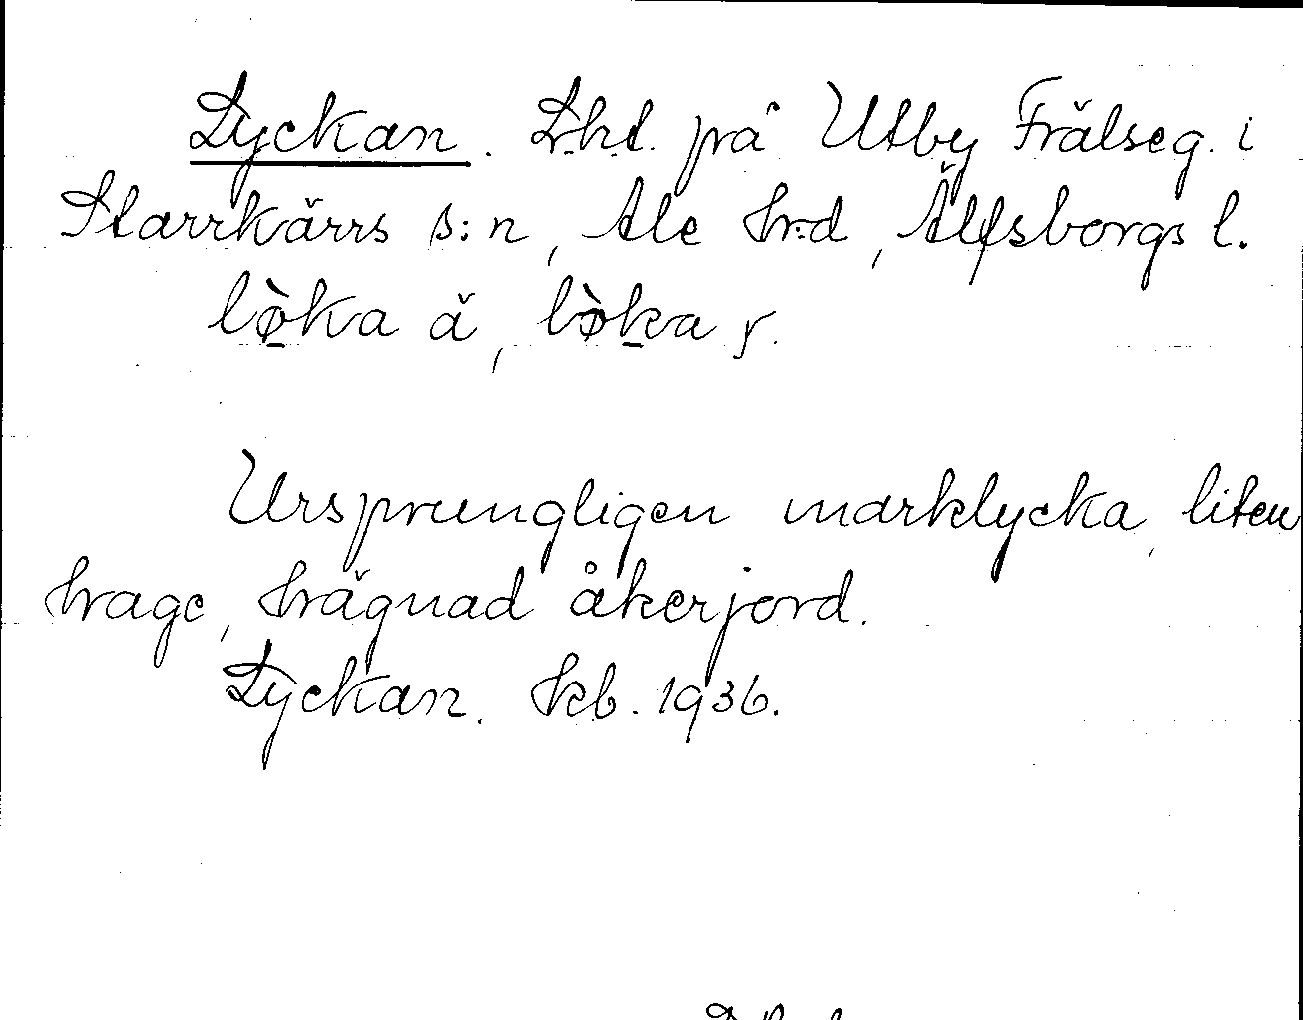 Lyckan. Lht. på Utby Frälseg. i
Starrkärrs s:n, Ale hrd, Älfsborgs l.
lø̀ka ä, lø̀ka r.
Ursprungligen marklycka, liten
hage, hägnad åkerjord.
Lyckan. kb. 1936.